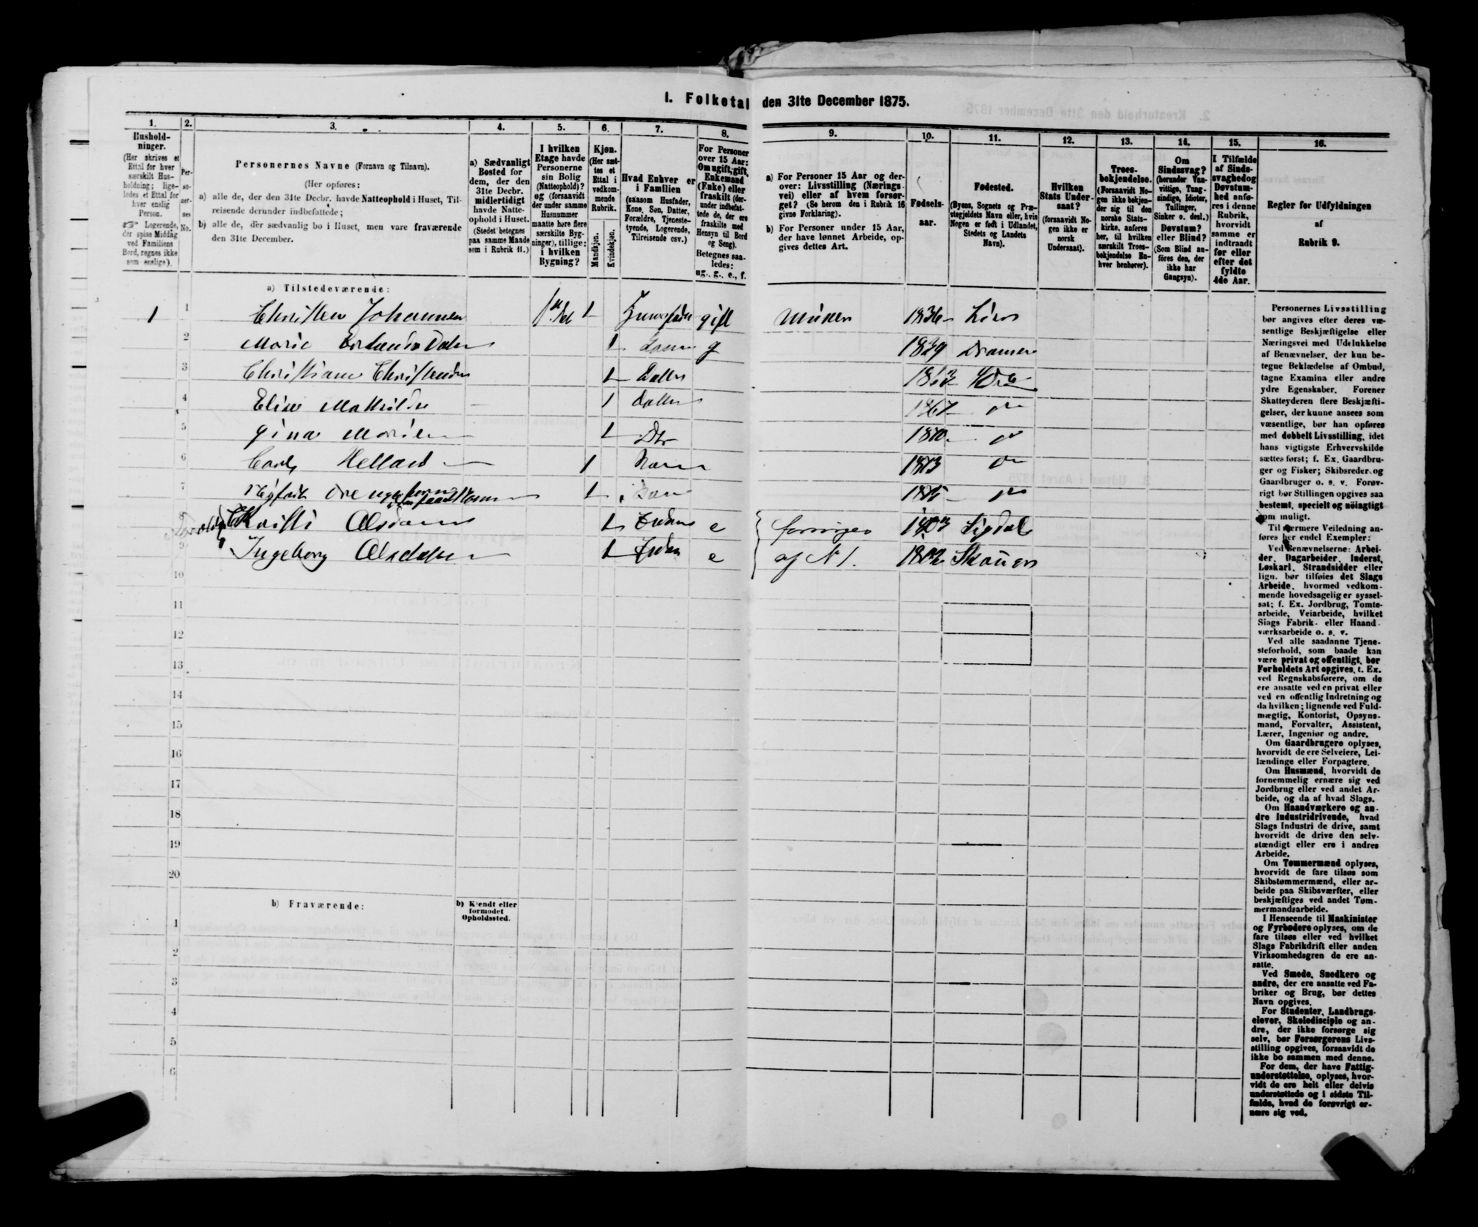 I. Folketal den 31te December 1875.
1.
Hushold-
ninger.
(Her skrives et
Ettal for hver
særskilt Hus-
holdning; lige-
ledes et Ettal for
hver enslig
Person.
☞ Logerende,
der spise Middag
ved Familiens
Bord, regnes ikke
som enslige).
2.
Per-
so-
ner-
nes
No.
3.
Personernes Navne (Fornavn og Tilnavn).
(Her opføres:
a) alle de, der den 31te Decbr. havde Natteophold i Huset, Til-
reisende derunder indbefattede;
b) alle de, der sædvanlig bo i Huset, men vare fraværende
den 31te December.
4.
a) Sædvanligt
Bosted for
dem, der den
31te Decbr.
midlertidigt
havde Natte-
ophold i Huset.
(Stedet betegnes
paa samme Maade
som i Rubrik 11.)
5.
I hvilken
Etage havde
Personerne
sin Bolig
(Natteophold)?
og (forsaavidt
der under samme
Husnummer
maatte høre flere
særskilte Byg-
ninger), tillige:
i hvilken
Bygning?
6.
Kjøn.
(Her sæt-
tes et
Ettal i
vedkom-
mende
Rubrik.
Mandkjøn.
Kvindekjøn.
7.
Hvad Enhver er
i Familien
(saasom Husfader,
Kone, Søn, Datter,
Forældre, Tjeneste-
tyende, Logerende,
Tilreisende osv.)
8.
For Personer
over 15 Aar:
Om ugift, gift,
Enkemand
(Enke) eller
fraskilt (der-
under indbefat-
tede de, der ere
fraskilte med
Hensyn til Bord
og Seng).
Betegnes saa-
ledes:
ug., g., e., f.
9.
a) For Personer 15 Aar og der-
over: Livsstilling (Nærings-
vei) eller af hvem forsør-
get? (Se herom den i Rubrik 16
givne Forklaring).
b) For Personer under 15 Aar,
der have lønnet Arbeide, op-
gives dettes Art.
10.
Fødsels-
aar.
11.
Fødested.
(Byens, Sognets og Præ-
stegjeldets Navn eller, hvis
Nogen er født i Udlandet,
Stedets og Landets
Navn).
12.
Hvilken
Stats Under-
saat?
(forsaavidt No-
gen ikke er
norsk
Undersaat).
13.
Troes-
bekjendelse.
(Forsaavidt No-
gen ikke bekjen-
der sig til den
norske Stats-
kirke, anføres
her, til hvilken
særskilt Troes-
bekjendelse En-
hver henhører).
14.
Om
Sindssvag?
(herunder Van-
vittige, Tung-
sindige, Idioter,
Tullinger,
Sinker o. desl.)
Døvstum?
eller Blind?
(Som Blind an-
føres den, der
ikke har
Gangsyn).
15.
I Tilfælde
af Sinds-
svaghed og
Døvstum-
hed anfø-
res i denne
Rubrik,
hvorvidt
samme er
indtraadt
før eller
efter det
fyldte
4de Aar.
16.
Regler for Udfyldningen
af
Rubrik 9.
a) Tilstedeværende:
1 1 Christen Johannesen 1 gift 1836 Lier
2 Marie 1 g 1839 Drammen
3 Christiane 1 Datter
4 Elise Mathilde 1 Datter 1867 do
5 Gina 1 Dtr 1870 do
6 Carl 1 1873 do
7 1 do
8 1 e forsørges Sigdal
9 Ingeborg 1 e af N 1. 1802
10
11
12
13
14
15
16
17
18
19
20
b) Fraværende:
b) Kjendt eller
formodet
Opholdssted.
1
2
3
4
5
6
Personernes Livsstilling
bør angives efter deres væ-
sentlige Beskjæftigelse eller
Næringsvei med Udelukkelse
af Benævnelser, der kun be-
tegne Beklædelse af Ombud,
tagne Examina eller andre
ydre Egenskaber. Forener
Skatteyderen flere Beskjæfti-
gelser, der kunne ansees som
væsentlige, bør han opføres
med dobbelt Livsstilling, idet
hans vigtigste Erhvervskilde
sættes først; f. Ex. Gaardbru-
ger og Fisker; Skibsreder og
Gaardbruger o. s. v. Forøv-
rigt bør Stillingen opgives saa
bestemt, specielt og nøiagtigt
som muligt.
Til nærmere Veiledning an-
føres her endel Exempler:
Ved Benævnelserne: Arbei-
der, Dagarbeider, Inderst,
Løskarl, Strandsidder eller
lign. bør tilføies det Slags
Arbeide, hvormed vedkom-
mende hovedsagelig er syssel-
sat; f. Ex. Jordbrug, Tomte-
arbeide, Veiarbeide, hvilket
Slags Fabrik- eller Haand-
værksarbeide o. s. v.
Ved alle saadanne Tjene-
steforhold, som baade kan
være privat og offentligt, bør
Forholdets Art opgives, t. Ex.
ved Regnskabsførere, om de
ere ansatte ved en privat eller
ved en offentlig Indretning og
da hvilken; lignende ved Fuld-
mægtig, Kontorist, Opsyns-
mand, Forvalter, Assistent,
Lærer, Ingeniør og andre.
Om Gaardbrugere oplyses,
hvorvidt de ere Selveiere, Lei-
lændinge eller Forpagtere.
Om Husmænd, hvorvidt de
fornemmelig ernære sig ved
Jordbrug eller ved andet Ar-
beide, og da af hvad Slags.
Om Haandværkere og an-
dre Industridrivende, hvad
Slags Industri de drive, samt
hvorvidt de drive den selv-
stændigt eller ere i andres
Arbeide.
Om Tømmermænd oplyses,
hvorvidt de fare tilsøs som
Skibstømmermænd, eller ar-
beide paa Skibsværfter, eller
beskjæftiges ved andet Tøm-
mermandsarbeide.
I Henseende til Maskinister
og Fyrbødere oplyses, om de
fare tilsøs eller ved hvilket
Slags Fabrikdrift eller anden
Virksomhedsgren de ere an-
satte.
Ved Smede, Snedkere og
andre, der ere ansatte ved Fa-
briker og Brug, bør dettes
Navn opgives.
For Studenter, Landbrugs-
elever, Skoledisciple og an-
dre, der ikke forsørge sig
selv, bør Forsørgerens Livs-
stilling opgives, forsaavidt de
ikke bo sammen med denne.
For dem, der have Fattig-
understøttelse, oplyses, hvor-
vidt de ere helt eller delvis
understøttede og i sidste Til-
fælde, hvad de forøvrigt er-
nære sig ved.